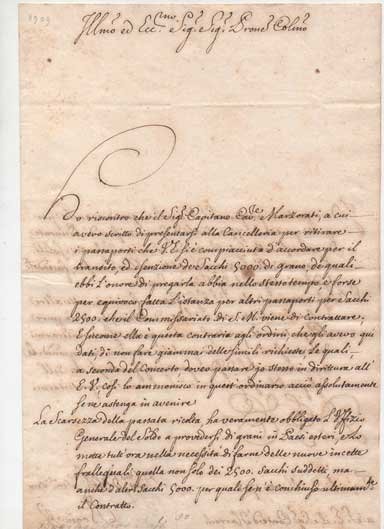 Illmo ed Eccmo Sigr. Sigr. Prone Colmo
Do riscontro che il Sigr. Capitano Cavre Marzorati, a cui
avevo scritto di presentarsi alla Cancelleria per ritirare
i passaporti che V. E. si è compiacciuta d'accordare per il
transito, ed esenzione de Sacchi 5000. di grano, de quali
ebbi l'onore di pregarla abbia nello stesso tempo e forse
per equivoco fatta l'istanza per altri passaporti per Sacchi
2500. che il Commissariato di S. M. viene di contrattare.
E siccome ella è questa contraria agli ordini, che gli avevo qui
dati, di non fare giammai delle simili richieste, le quali
a seconda del Concerto devo passare io stesso in diritura all'
E. V. così lo ammonisco in quest'ordinario acciò absolutamente
se ne astenga in avenire
La Scarsezza della passata ricolta, ha veramente obbligato l'Ufizio
Generale del Soldo a provedersi di grani in Paesi esteri, e lo
mette tutt'ora nella necessità di farne delle nuove incette
fralle quali quella non solo dei 2500. Sacchi suddetti, ma
anche d'altri Sacchi 5000. per quale se n'è conchiuso ultimamte
il Contratto.